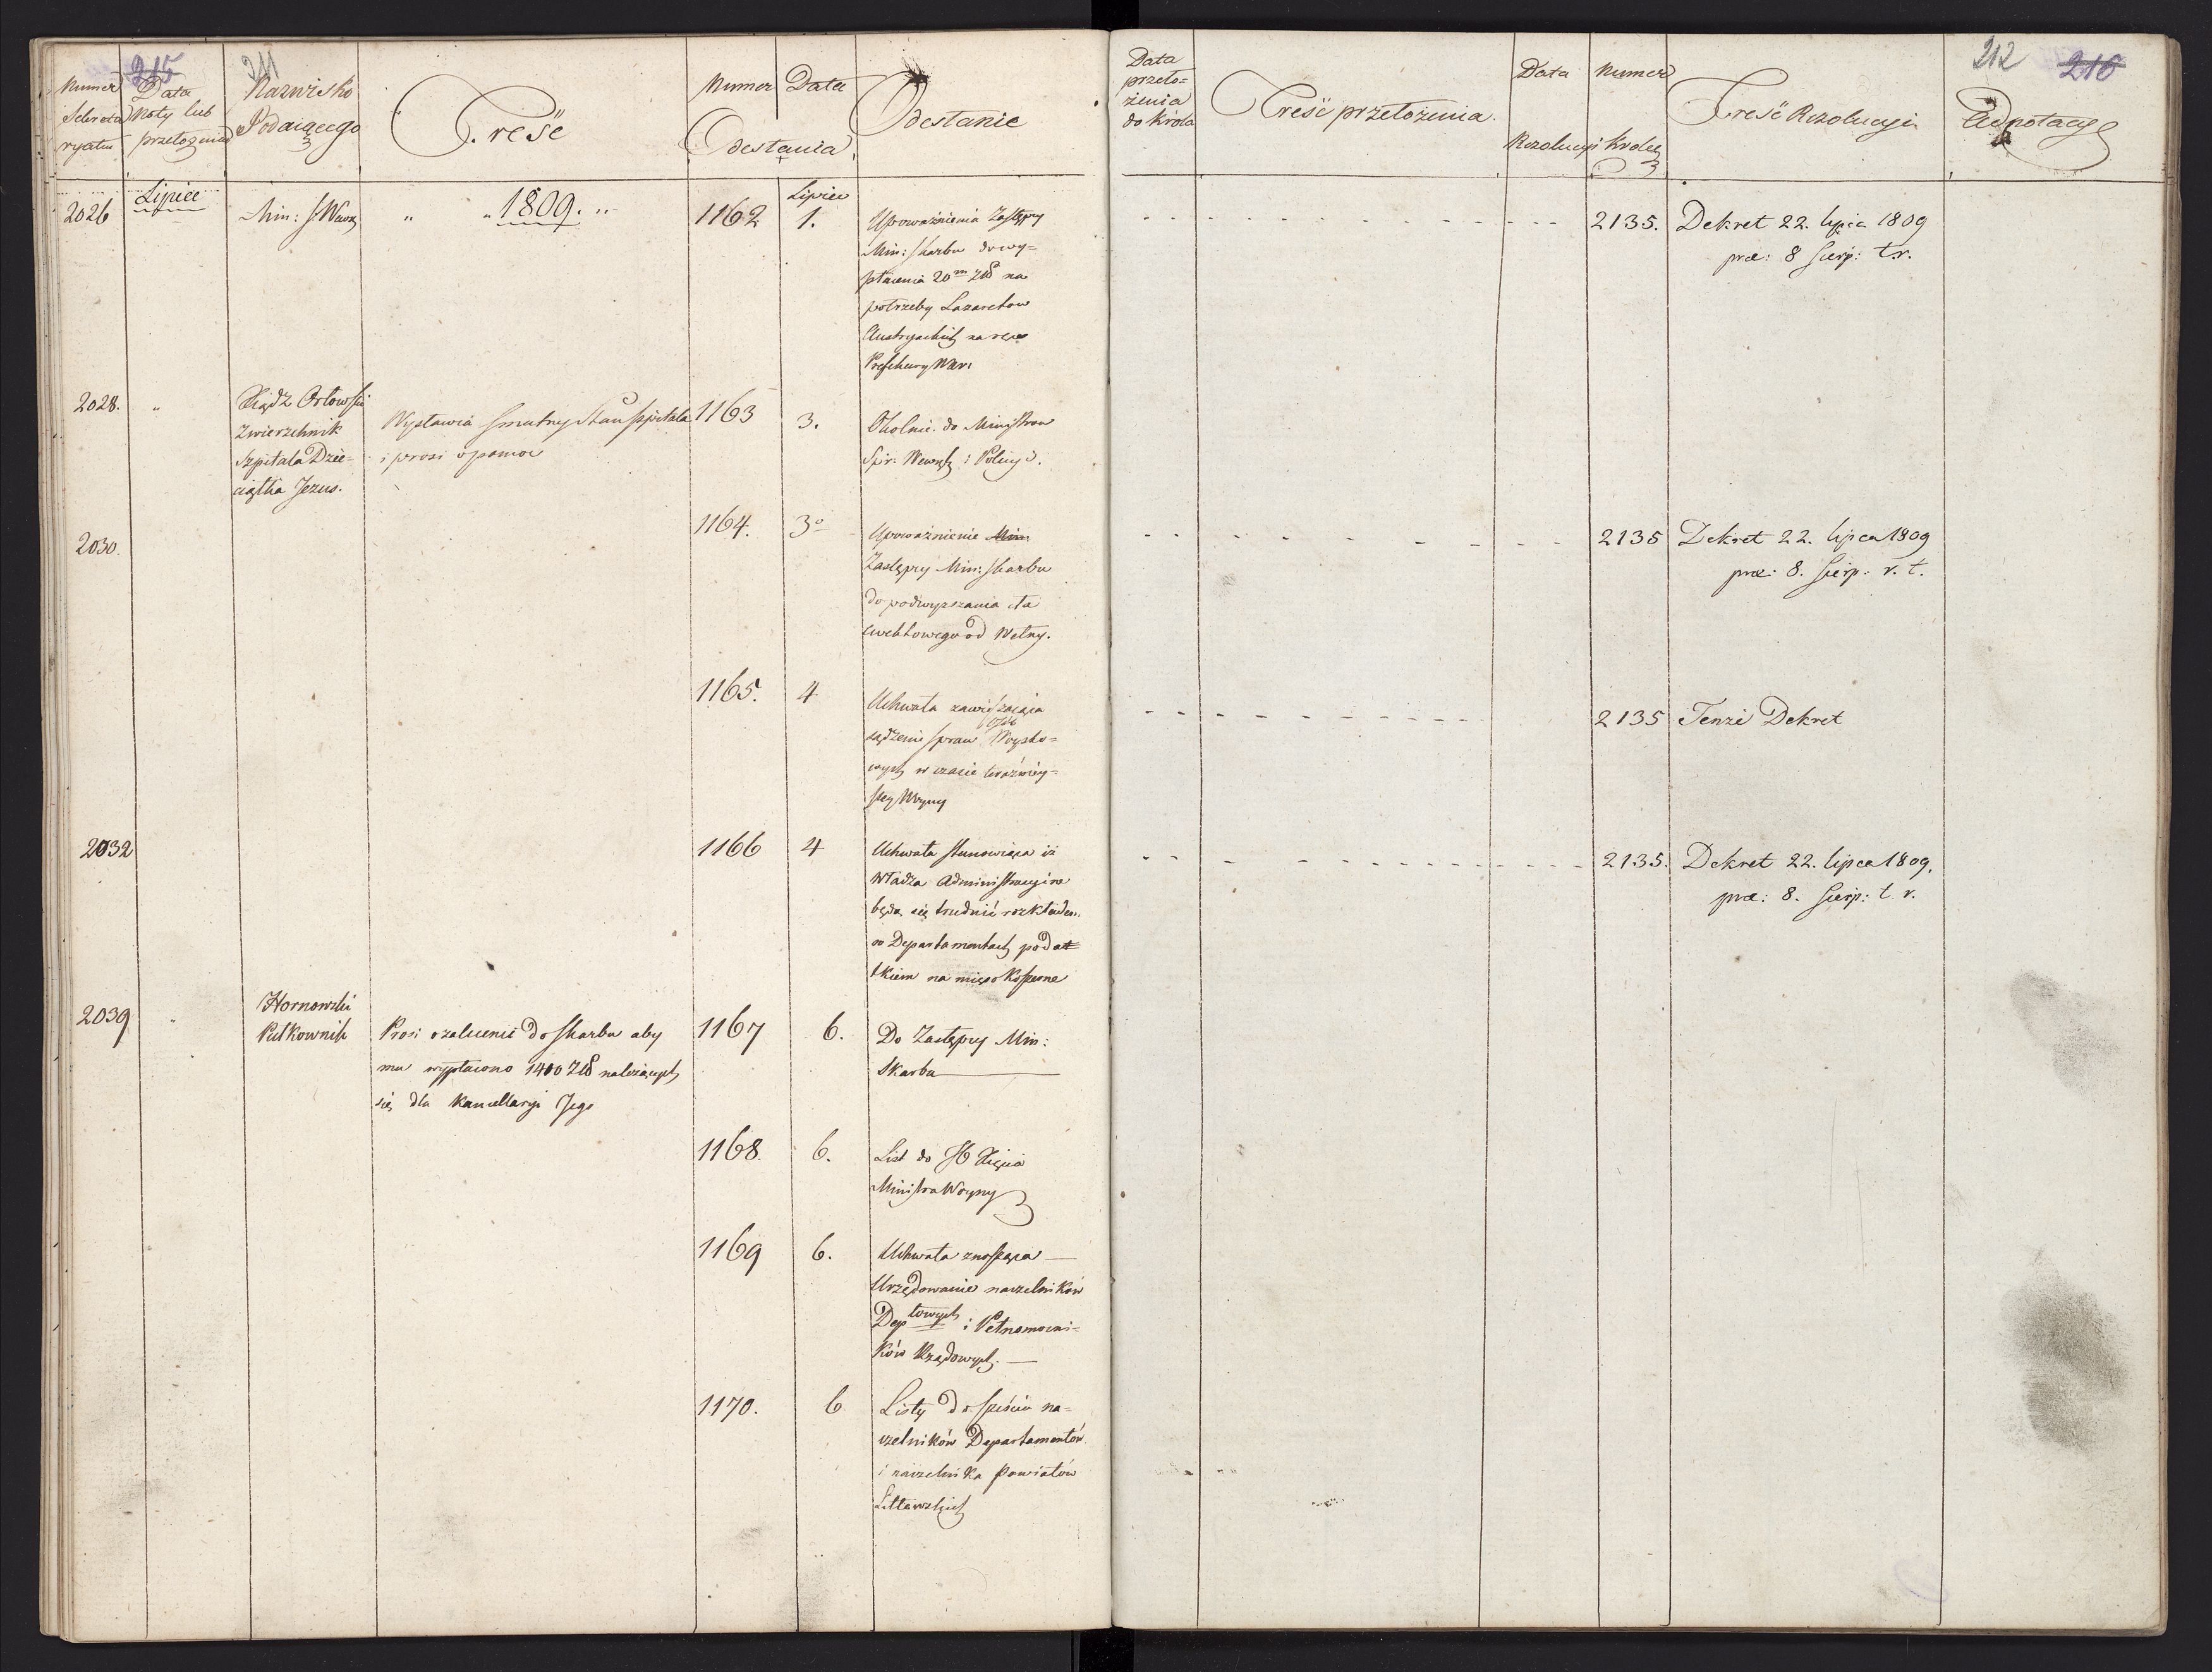 215
211
Numer Sekreta ryatu
Data Noty lub przełożenia
Nazwisko Podaiącego
Treść
Numer Data
Odesłania
Odesłanie
Lipiec
Lipiec
2026
Min: S. Wewn
" " 1809. "
1162
1.
Upoważnienia Zastępcy
Min: Skarbu do wy=
płacenia 20m złł na
potrzeby Lazaretow
Austryackich na ręce
Prefektury War:
2028.
"
Xiądz Orłowski
Zwierzchnik
Szpitala Dzie=
ciątka Jezus.
Wystawia smutny stan szpitala
i prosi o pomoc
1163
3.
Okolnie. do Ministrow
Spr: Wewnętz i Policyi.
2030.
1164.
3o
Upoważnienie Min:
Zastępcy Min: Skarbu
do podwyższania cła
ewektowego od Wełny.
1165.
4
Uchwała zawieszaiąca
sądzenie spraw Woysko=
wych w czasie teraźniey=
szey Woyny
2032
1166
4
Uchwała stanowiąca iż
Władza Administracyine
będą się trudnić rozkładem
po Departamentach podat
tkiem na mięso Koszerne
2039
"
Hornowski
Pułkownik
Prosi o zalecenie do Skarbu aby
mu wypłacono 1400 złł należących
się dla Kancellaryi Jego
1167
6.
Do Zastępcy Min:
Skarbu
1168.
6.
List do JO Xięcia
Ministra Woyny
1169
6.
Uchwała znosząca
Urzędowanie naczelników
Deptowych i Pełnomocni=
ków Rządowych.
1170.
6
Listy do sześciu na=
czelników Departamentów
i naczelnika Powiatów
Littewskich
212
216
Data przeło= żenia do Króla
Treść przełożenia.
Data Numer
Rezolucyi Króley
Treść Rezolucyi
Adnotacye
2135.
Dekret 22. lipca 1809
prae: 8 Sierp: t.r.
2135
Dekret 22. lipca 1809
prae: 8. Sierp: r. t.
2135
Tenże Dekret
2135.
Dekret 22. lipca 1809.
prae: 8. Sierp: t. r.